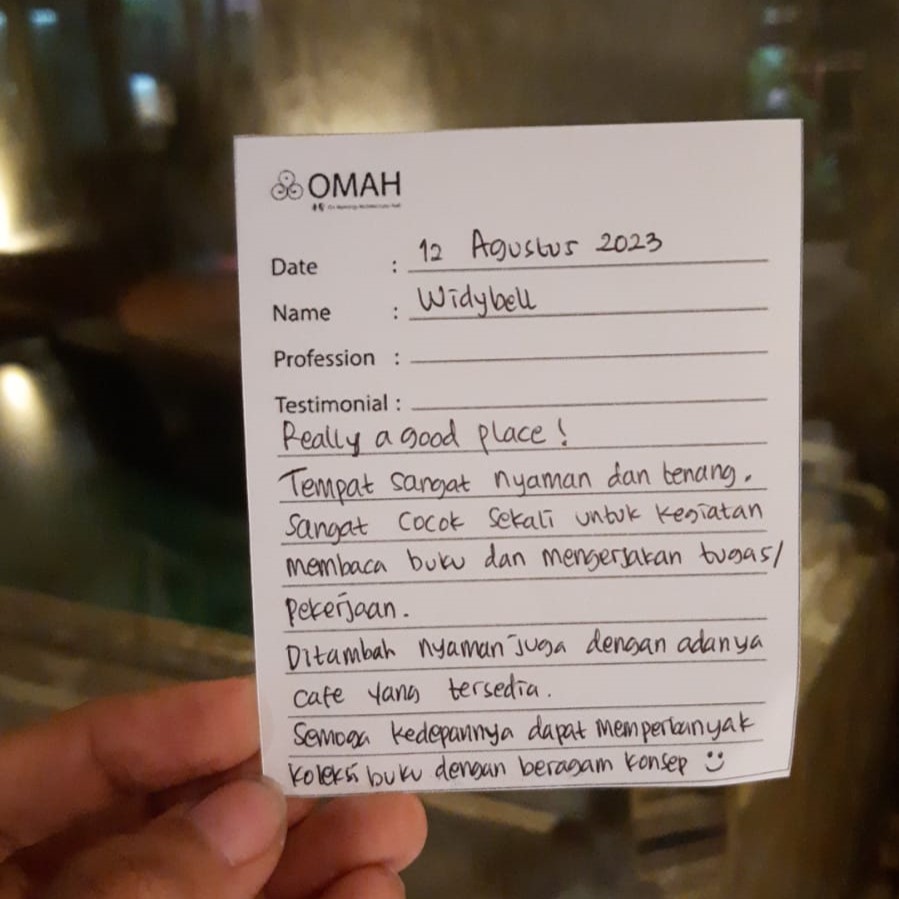 OMAH
Date : 12 Agustus 2023
Name : Widybell
Profession :
Testimonial :
Really a good place!
Tempat sangat nyaman dan tenang.
Sangat cocok sekali untuk kegiatan
membaca buku dan mengerjakan tugas/
pekerjaan.
Ditambah nyaman juga dengan adanya
cafe yang tersedia.
Semoga kedepannya dapat memperbanyak
koleksi buku dengan beragam konsep